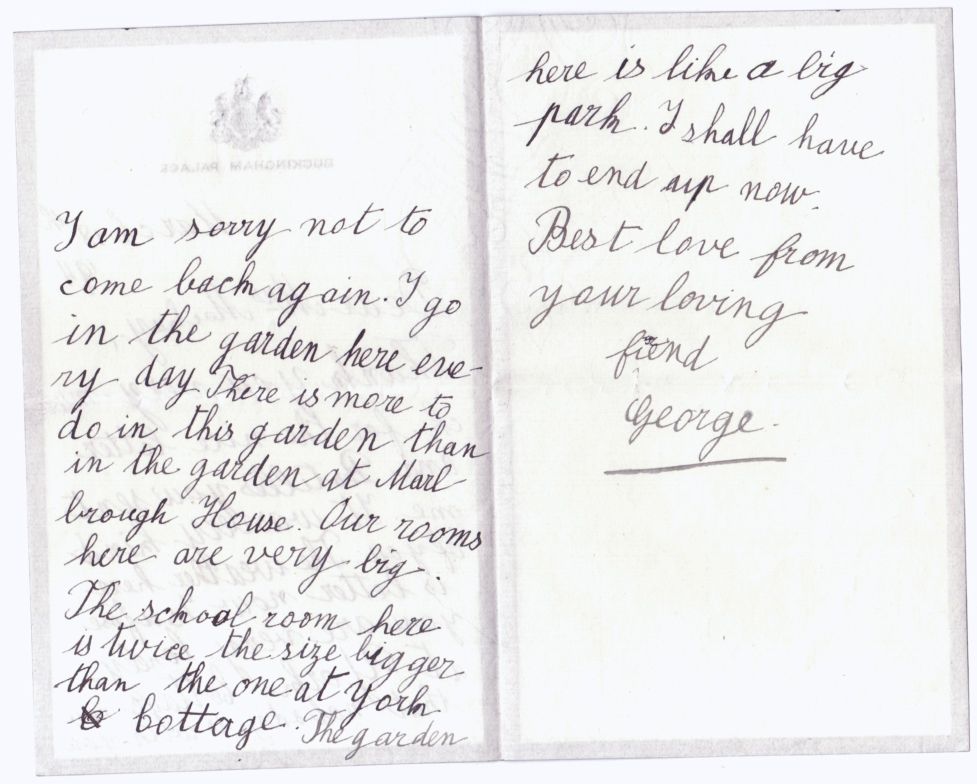 BUCKINGHAM PALACE
I am sorry not to
come back again. I go
in the garden here eve-
ry day There is more to
do in this garden than
in the garden at Marl
brough House. Our rooms
here are very big.
The school room here
is twice the size bigger
than the one at York
Cottage. The garden
here is like a big
park. I shall have
to end up now.
Best love from
your loving
friend
George.